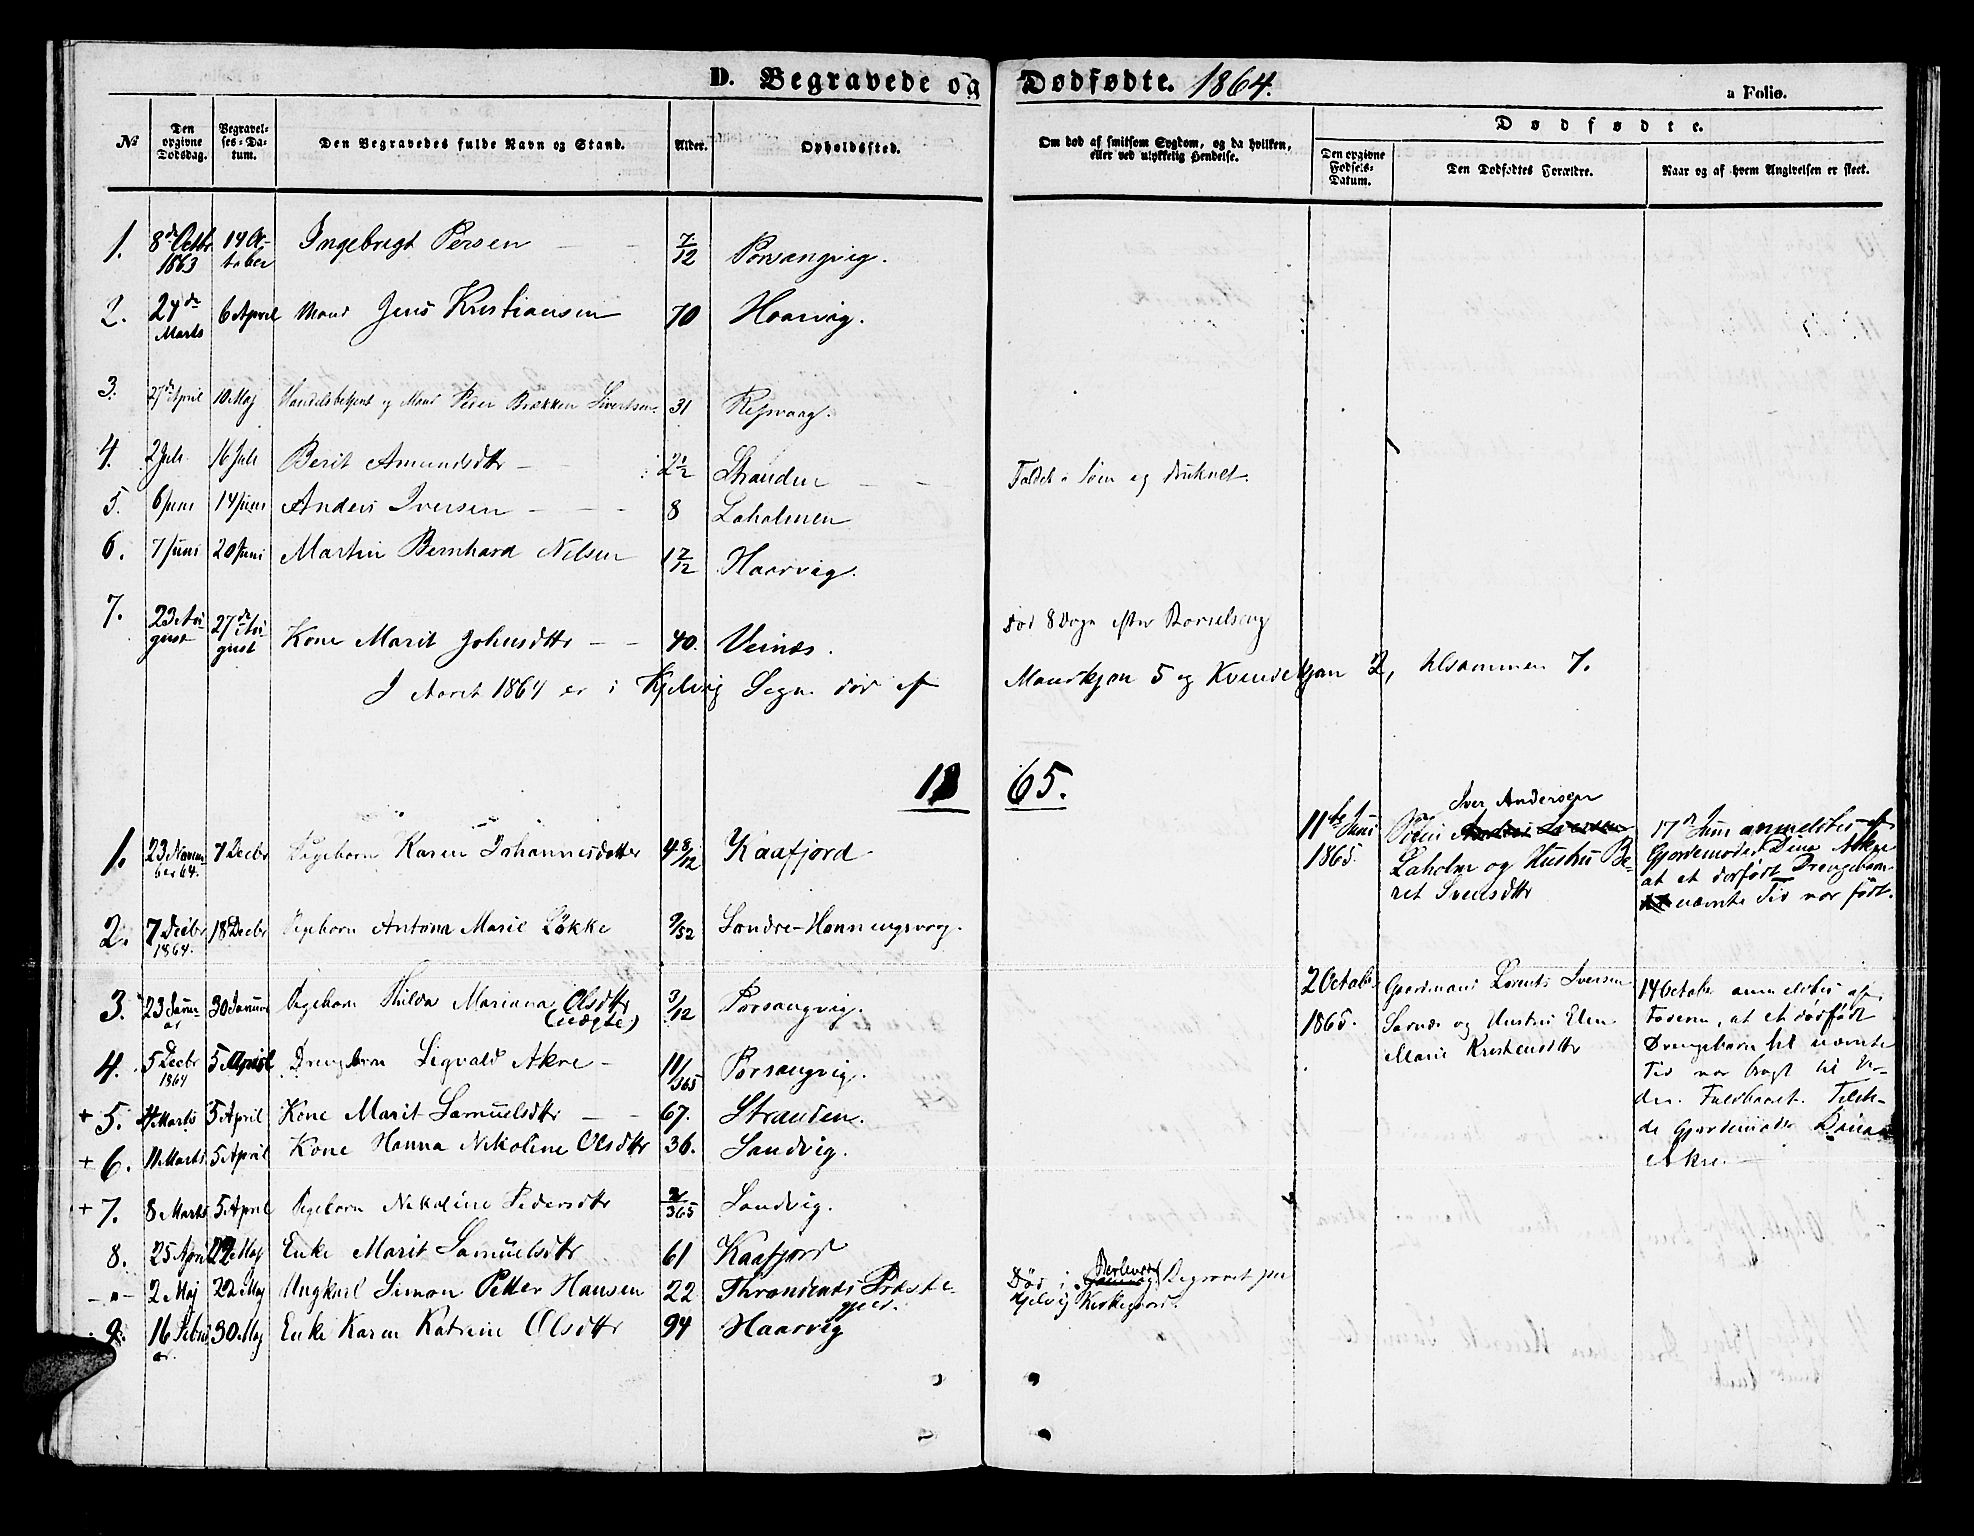 D. Begravede og Dødfødte. 1864.
a Folio.
№ Den opgivne Dødsdag. Begravelses-Datum. Den Begravedes fulde Navn og Stand. Alder. Opholdssted. Om død af smitsom Sygdom, og da hvilken, eller ved ulykkelig Hendelse. Dødfødte.
Den opgivne Fødsels-Datum. Den Dødfødtes Forældre. Naar og af hvem Angivelsen er skeet.
1. 8de Octbr 1863 14 October Ingebrigt Persen 7/12 Porsangvig.
2. 24de Marts 6 April Mand Jens Kristiansen 70 Haarvig.
3. 27de April 10 Maj Handelsbetjent og Mand Peder Brækken Sivertsen 31 Repvaag.
4. 2 Juli 16 Juli Berit Amundsdtr 2 1/2 Stranden Faldt i Søen og druknet.
5. 6 Juni 14 Juni Anders Iversen 8 Laholmen
6. 7 Juni 20 Juni Martin Bernhard Nilsen 1 7/12 Haarvig.
7. 23 August 27de August Kone Marit Johnsdtr 40. Veines. Død 8 Døgn efter Barselseng
I Aaret 1864 er i Kjelvig Sogn død af Mandkjøn 5 og Kvindekjøn 2, tilsammen 7.
1865.
1. 23 November 64. 7 Decbr Pigebarn Karen Johannesdatter 4 8/12 Kaafjord
2. 7 Decbr 1864. 18 Decbr Pigebarn Antona Marie Løkke 9/52 Søndre-Honningsvaag.
3. 23 Januar 30 Januar Pigebarn Hilda Mariana Olsdtr (uægte) 3/12 Porsangvig.
4. 5 Decbr 1864 5 April Drengebarn Sigvald Akre 11/365 Porsangvig.
+ 5. 4 Marts 5 April Kone Marit Samuelsdtr 67. Stranden.
+ 6. 11 Marts 5 April Kone Hanna Nikoline Olsdtr 36. Sandvig.
+ 7. 8 Marts 5 April Pigebarn Nikoline Pedersdtr 2/365 Sandvig.
8. 25 April 22 Maj Enke Marit Samuelsdtr 61 Kaafjord
- " - 2 Maj 22 Maj Ungkarl Simon Petter Hansen 22 Throndenæs Præstegjeld. Død i Berlevaag Begravet paa Kjelvig Kirkegaard.
9. 16 Februar 30 Maj Enke Karen Katrine Olsdtr 94 Haarvig
11te Juni 1865. Iver Andersen
Laholm og Hustru Beret Svensdtr
17de Juni anmeldtes af
Gjordemoder Dina Akre
at et dødfødt Drengebarn
nævnte Tid var født.
2 October 1865. Gaardmand Lorents Iversen
Sarnæs og Hustru Elen
Marie Kristensdtr
14 October anmeldtes af
Faderen, at et dødfødt
Drengebarn til nævnte
Tid var bragt til Ver-
den. Fuldbaaret. Tilste-
de Gjordemoder Dina
Akre.